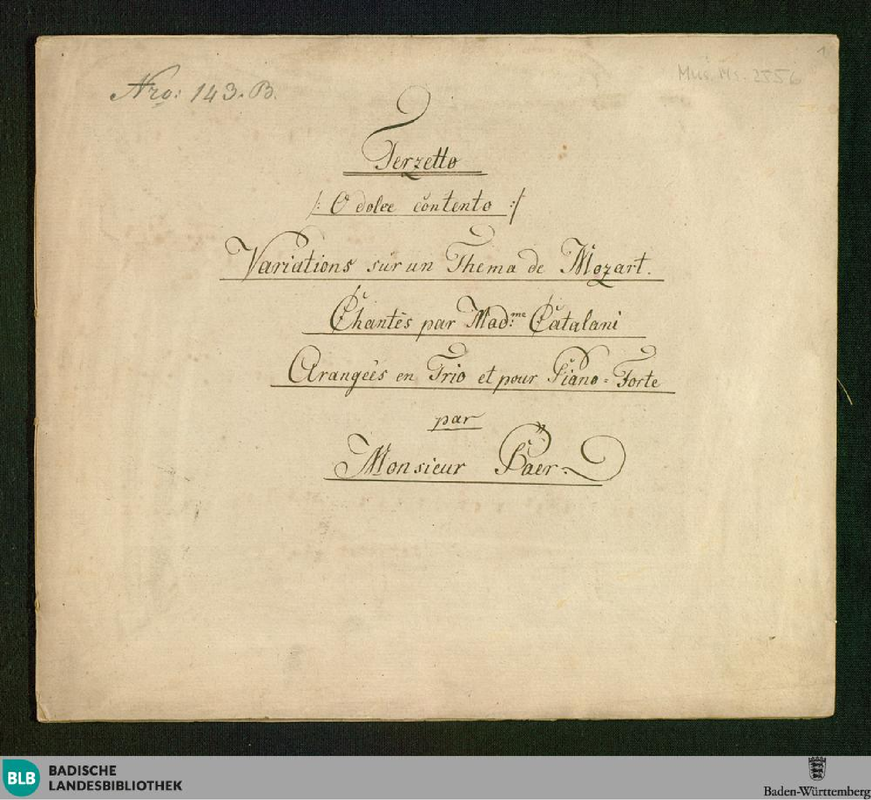 Nro: 143. B.
Mus. Ms. 2556
1
Terzetto
/: O dolce contento :/
Variations sur un Thema de Mozart.
Chantés par Mad:me Catalani
Arangeés en Trio et pour Piano=Forte
par
Monsieur Paer.
BLB BADISCHE
LANDESBIBLIOTHEK
Baden-Württemberg